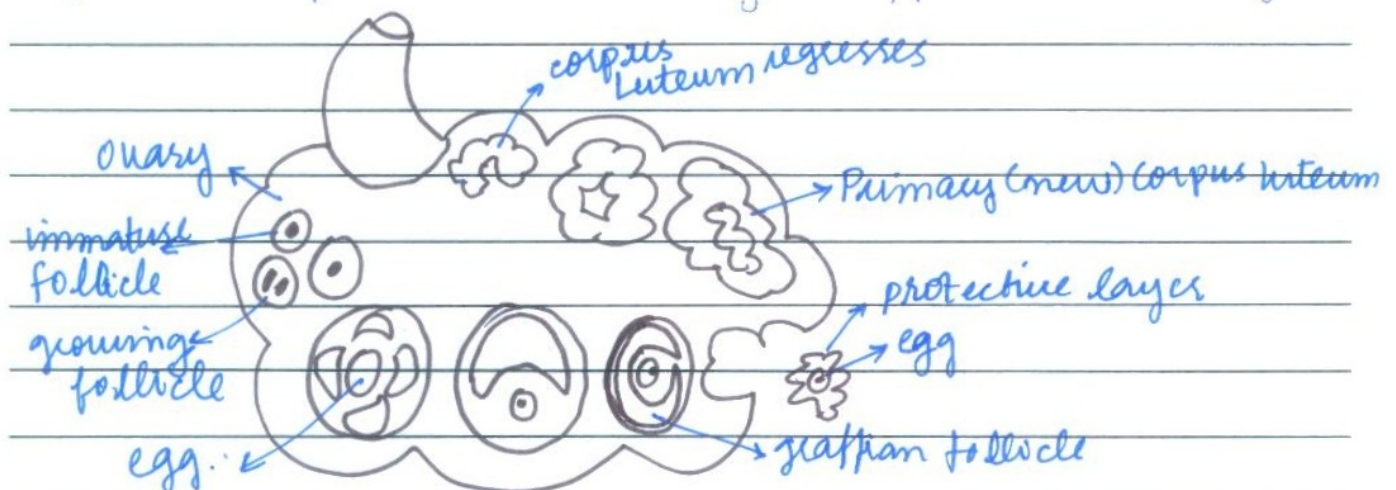 corpus
Luteum regresses
ovary
Primary (new) Corpus luteum
immature
follicle
protective layer
growing
follicle
egg
graffian follicle
egg.